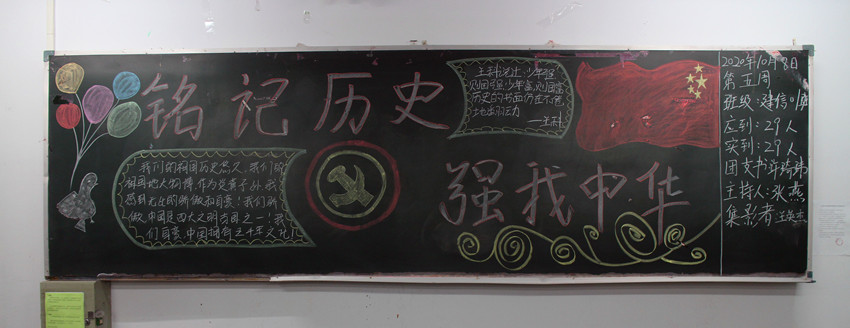 铭记历史
强我中华
主科说过，少年强
则国强，少年富，则国富
历史的书面仍在不
—主科
我们的祖国历史悠久，我们的
祖国地大物博，作为炎黄子孙，我
感到无任的骄傲和自豪！我们骄
傲，中国是四大文明古国之一！我
们自豪，中国拥有五千年文化
2020年10月8日
第五周
班级：建信
应到：29人
实到：29人
团支书
主持人：张燕
集影者：王英杰